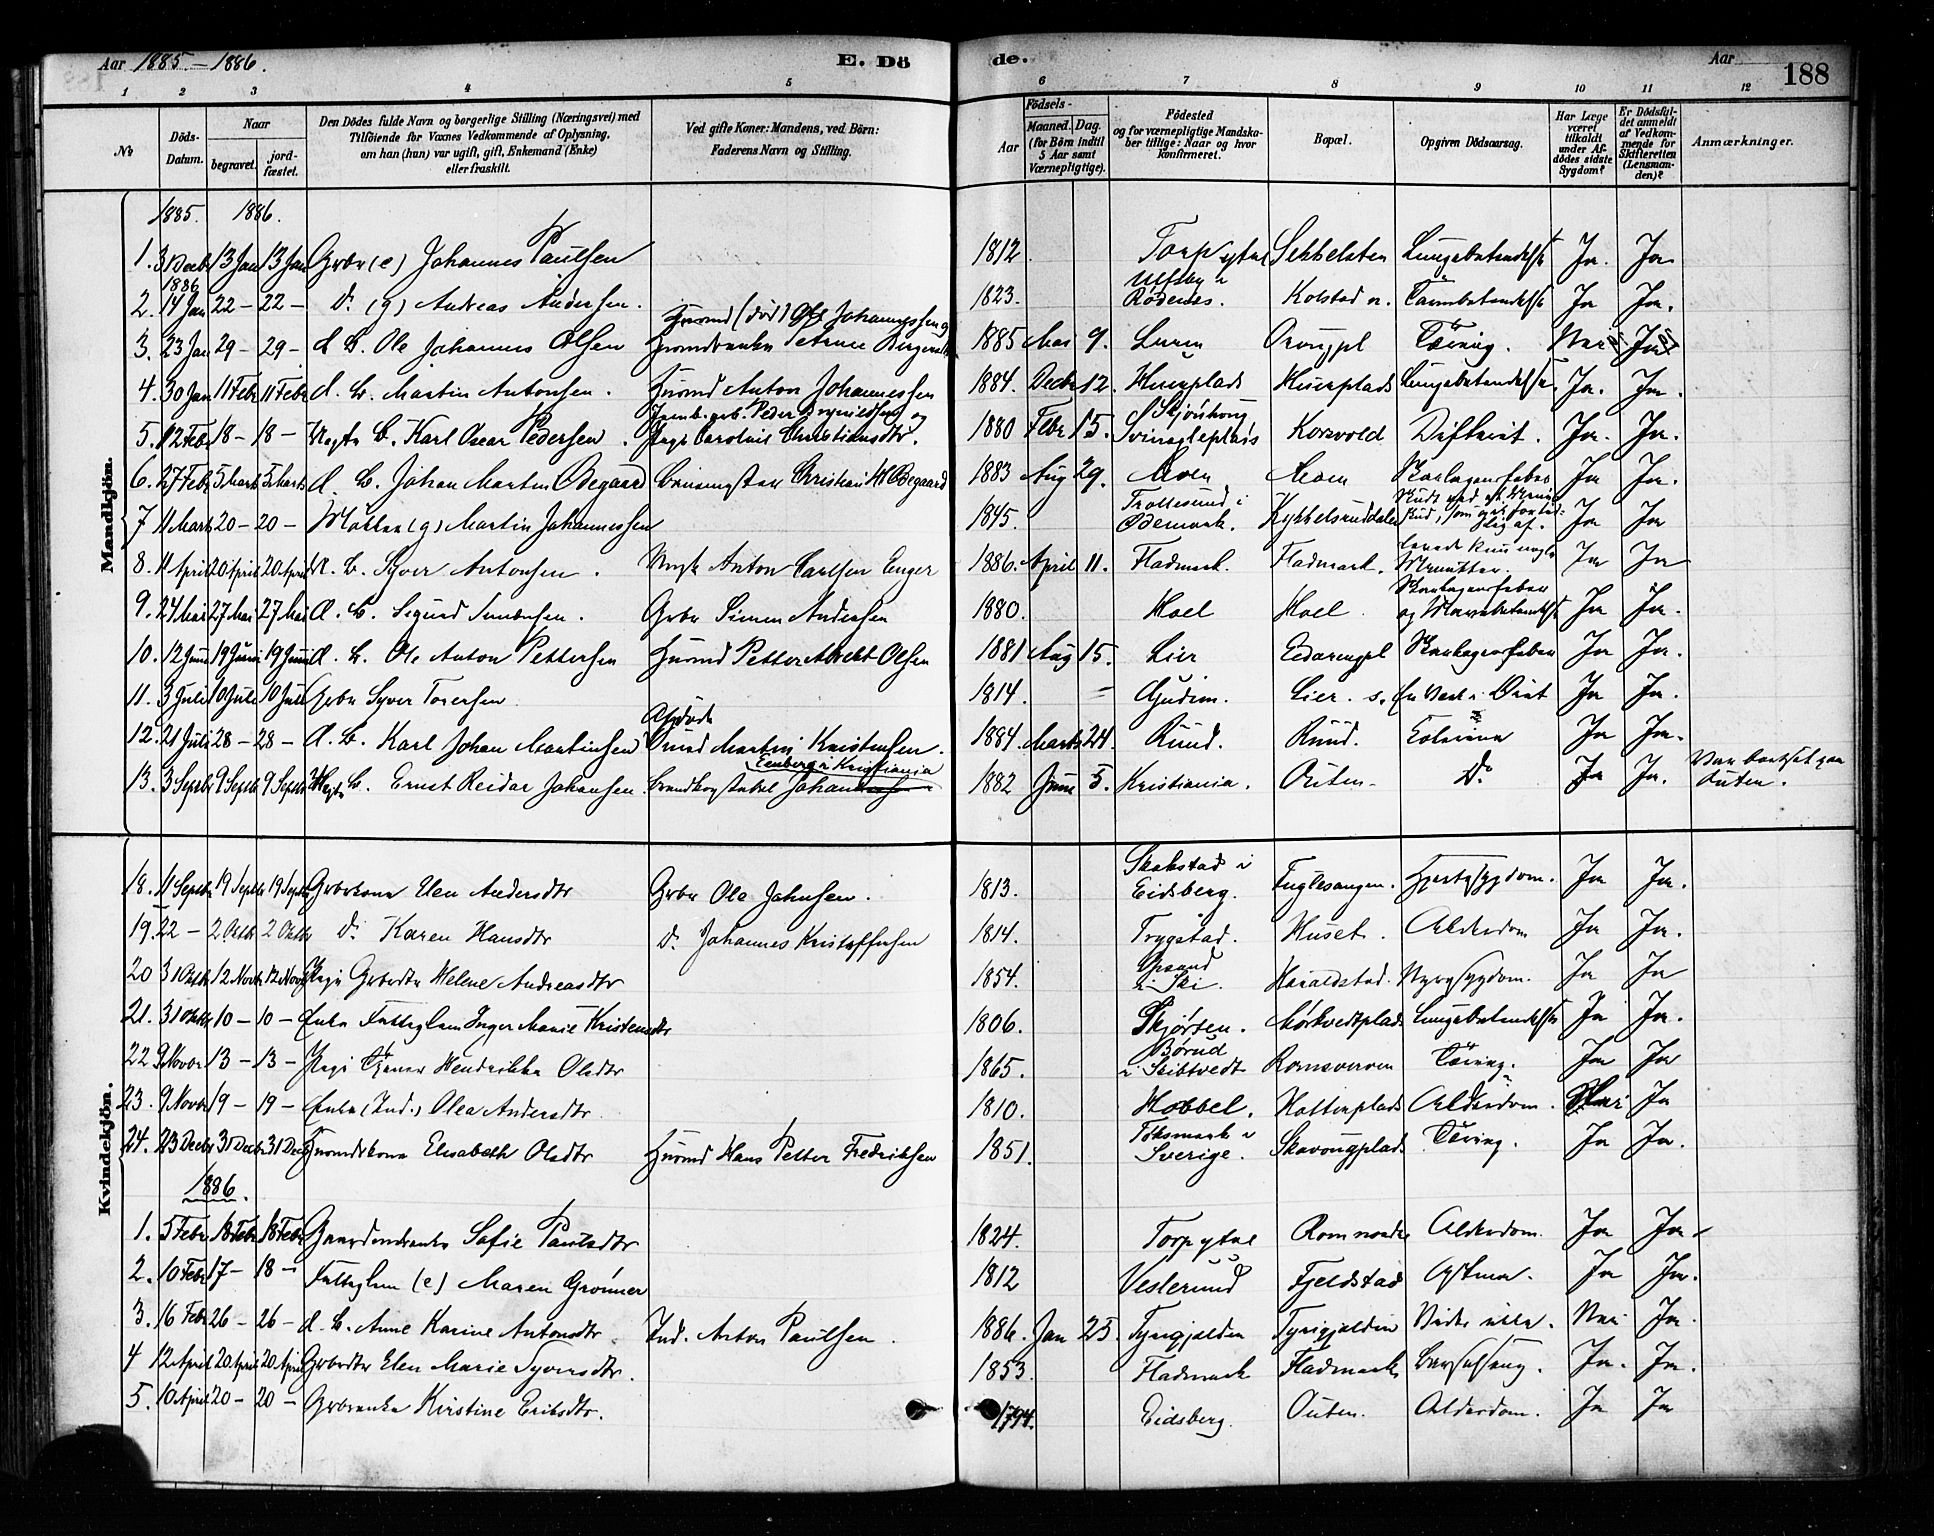 Aar 1885 - 1886.
E. Dö
de.
Aar
188
1 2 3 4 5 6 7 8 9 10 11 12
№
Döds-Datum.
Naar
begravet.
jord-fæstet.
Den Dödes fulde Navn og borgerlige Stilling (Næringsvei) med
Tilföiende for Voxnes Vedkommende af Oplysning,
om han (hun) var ugift, gift, Enkemand (Enke)
eller fraskilt.
Ved gifte Koner: Mandens, ved Börn:
Faderens Navn og Stilling.
Födsels-
Aar
Maaned. Dag.
(for Börn indtil
5 Aar samt
Værnepligtige).
Födested
og for værnepligtige Mandska-
ber tillige: Naar og hvor
konfirmeret.
Bopæl.
Opgiven Dödsaarsag.
Har Læge
været
tilkaldt
under Af-
dödes sidste
Sygdom?
Er Dödsfal-
det anmeldt
af Vedkom-
mende for
Skifteretten
(Lensman-
den)?
Anmærkninger.
Mandkjön.
1885. 1886.
1. 31 Decb 13 Jan 13 Jan Grbr (e) Johannes Paulsen 1812 Torp Sekkelsten Lungebetændelse Ja. Ja
1886
2. 14 Jan 22 - 22 - Do (g) Andreas Andersen. 1823. Ulfsby i Rødenes. Kolstad n. Tarmbetændelse Ja Ja.
3. 23 Jan 29 - 29 - d. B. Ole Johannes Olsen Husmd (død) Ole Johannessen 1885 Mai 9. Luren Tæring. Nei Ja
4. 30 Jan 11 Febr 11 Febr d. B. Martin Antonsen. Husmd Anton Johannessen 1884. Decbr 12. Lungebetændelse Ja. Ja.
5. 12 Febr 18 - 18 - B. Karl Oscar Pedersen. Pige Caroline Christiansdtr. 1880 Febr 15. Korsvold Difterit. Ja. Ja.
6. 27 Febr 5 Marts 5 Marts d. B. Johan Martin Ødegaard Christian Ødegaard 1883 Aug 29. Moen Moen Skarlagensfeber Ja Ja.
7 11 Marts 20 - 20 - Møller (g) Martin Johannessen 1845. Trollesund i Ødemark. Ja Ja
8. 11 April 20 April 20 April B. Syver Antonsen. Anton Carlsen Enger 1886. April 11. Fladmark. Fladmark. Levede kun nogle Minutter. Ja Ja
9. 24 Mai 27 Mai 27 Mai d. B. Sigurd Simensen. Grbr Simen Andersen 1880. Hoel Hoel. Skarlagensfeber Ja Ja.
10. 12 Juni 19 Juni 19 Juni d. B. Ole Anton Pettersen Husmd Petter Olsen 1881 Aug 15. Lier Skarlagensfeber Ja Ja.
11. 3 Juli 10 Juli 10 Juli Grbr Syver Toresen 1814. Gudim. Lier. s. Ja Ja.
12. 21 Juli 28 - 28 - d. B. Karl Johan Martinsen Afdøde Martin Kristensen. 1884. Marts 24. Ruud. Ruud. Ja Ja.
13. 3 Septbr 9 Septbr 9 Septbr B. Ernst Reidar Johansen. Brandkonstabel Johan Eenberg i Kristiania 1882 Juni 5. Kristiania. Outen. Do Ja Ja. Var bortsat paa Outen.
Kvindekjön.
18. 11 Septbr 19 Septbr 19 Septbr Grbrkone Elen Andersdtr Grbr Ole Johnsen. 1813. Skakstad i Eidsberg. Fuglesangen. Hjertesygdom. Ja Ja.
19. 22 - 2 Octbr 2 Octbr Do Karen Hansdtr Do Johannes Kristoffersen 1814. Trygstad. Huset. Alderdom Ja Ja.
20 31 Octbr 12 Novbr 12 Novbr Pige Grbrdtr Helene Andreasdtr 1854. i Ski. Haraldstad. Nyresygdom. Ja Ja
21. 31 Octbr 10 - 10 - Enke Fattiglem Inger Marie Kristensdtr 1806. Skjørten. Mørkvedtplads Lungebetændelse Ja Ja.
22 9 Novbr 13 - 13 - Pige Tjener Hendrikke Olsdtr 1865. Børud i Skibtvedt Romsverven Tæring. Ja Ja
23. 9 Novbr 19 - 19 - Enke (Ind.) Olea Andersdtr. 1810. Hobbel. Alderdom. Nei Ja
24. 23 Decbr 31 Decbr 31 Decbr Husmdskone Elisabeth Olsdtr Husmd Hans Petter Fredriksen 1851. Töksmark i Sverige. Skavougplads Tæring. Ja Ja.
1886.
1. 5 Febr 18 Febr 18 Febr Sofie Paulsdtr 1824. Torp Rom nordre Alderdom. Ja Ja
2. 10 Febr 17 - 18 - Fattiglem (e) Maren Grønner 1812 Veslerund Fjeldstad Astma. Ja Ja.
3. 16 Febr 26 - 26 - d. B. Anne Karine Antonsdtr. Ind. Anton Paulsen. 1886. Jan 25. Tyrigjelden Tyrigjelden Nei Ja.
4 12 April 20 April 20 April Grbrdtr Elen Marie Syversdtr. 1853. Fladmark Fladmark Barselseng. Ja. Ja.
5. 10 April 20 - 20 - Grbrenke Kirstine Eriksdtr. 1794. Eidsberg. Outen. Alderdom. Ja Ja